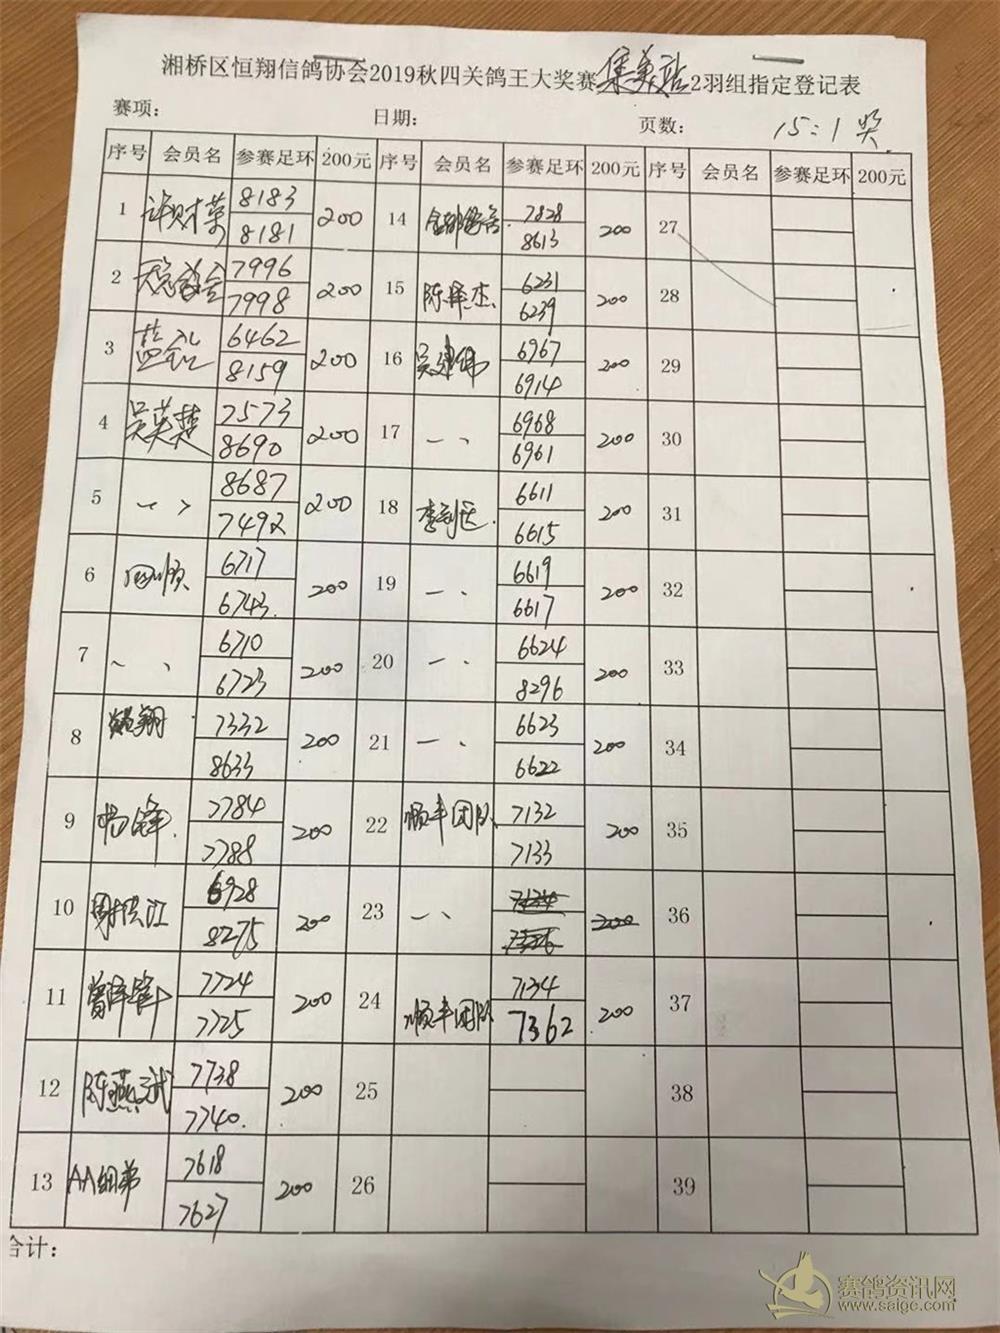 湘桥区恒翔信鸽协会2019秋四关鸽王大奖赛集美站2羽组指定登记表
赛项: 日期: 页数: 15:1奖
序号 会员名 参赛足环 200元 序号 会员名 参赛足环 200元 序号 会员名 参赛足环 200元
1 许财荣 8183 8181 200 14 7828 8613 200 27
2 7996 7998 200 15 陈泽杰 6231 6239 200 28
3 6462 8159 200 16 吴建伟 6967 6914 200 29
4 吴英楚 7573 8690 200 17 6968 6961 200 30
5 8687 7492 200 18 6611 6615 200 31
6 6717 6743 200 19 6619 6617 200 32
7 6710 6723 200 20 6624 8296 200 33
8 7332 8633 200 21 6623 6622 200 34
9 杨锋 7784 7788 200 22 顺丰团队 7132 7133 200 35
10 6928 8275 200 23 7134 200 36
11 7724 7725 200 24 顺丰团队 7134 7362 200 37
12 陈燕斌 7738 7740 200 25 38
13 AA细弟 7618 7627 200 26 39
合计:
赛鸽资讯网
www.saigc.com